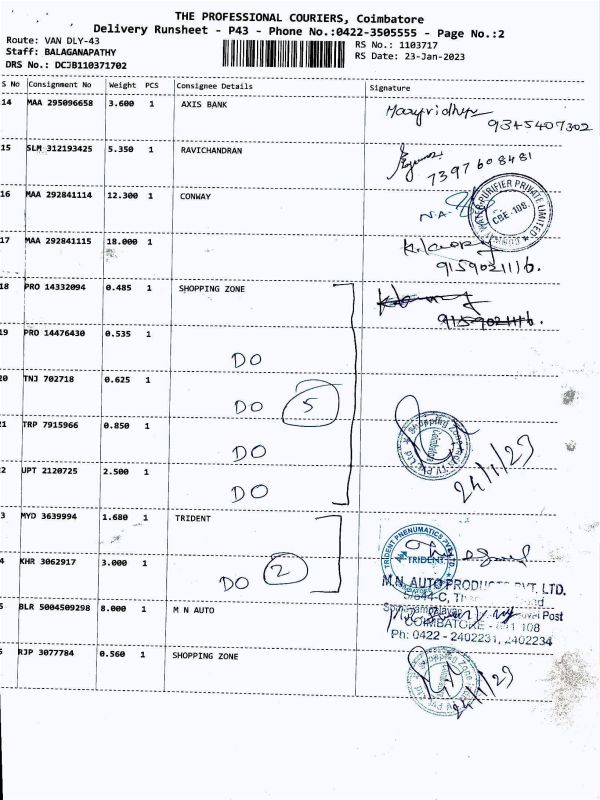 THE PROFESSIONAL COURIERS, Coimbatore
Delivery Runsheet - P43 - Phone No.:0422-3505555 - Page No.:2
Route: VAN DLY-43
Staff: BALAGANAPATHY
DRS No.: DCJB110371702
RS No.: 1103717
RS Date: 23-Jan-2023
S No Consignment No Weight PCS Consignee Details Signature
14 MAA 295096658 3.600 1 AXIS BANK
9345407302
15 SLM 312193425 5.350 1 RAVICHANDRAN
7397608481
16 MAA 292841114 12.300 1 CONWAY
N.A
WATER PURIFIER PRIVATE LIMITED
CBE-108.
17 MAA 292841115 18.000 1
9159021116.
18 PRO 14332094 0.485 1 SHOPPING ZONE
9159021116.
19 PRO 14476430 0.535 1
DO
20 TNJ 702718 0.625 1
DO 5
21 TRP 7915966 0.850 1
DO
Shopping Zone
24/1/23
22 UPT 2120725 2.500 1
DO
3 MYD 3639994 1.680 1 TRIDENT
TRIDENT PNEUMATICS
TRIDENT
4 KHR 3062917 3.000 1
DO 2
M.N. AUTO PRODUCTS PVT. LTD.
5 BLR 5004509298 8.000 1 M N AUTO
Post
COIMBATORE - 641 108
Ph: 0422 - 2402231, 2402234
RJP 3077784 0.560 1 SHOPPING ZONE
24/1/23